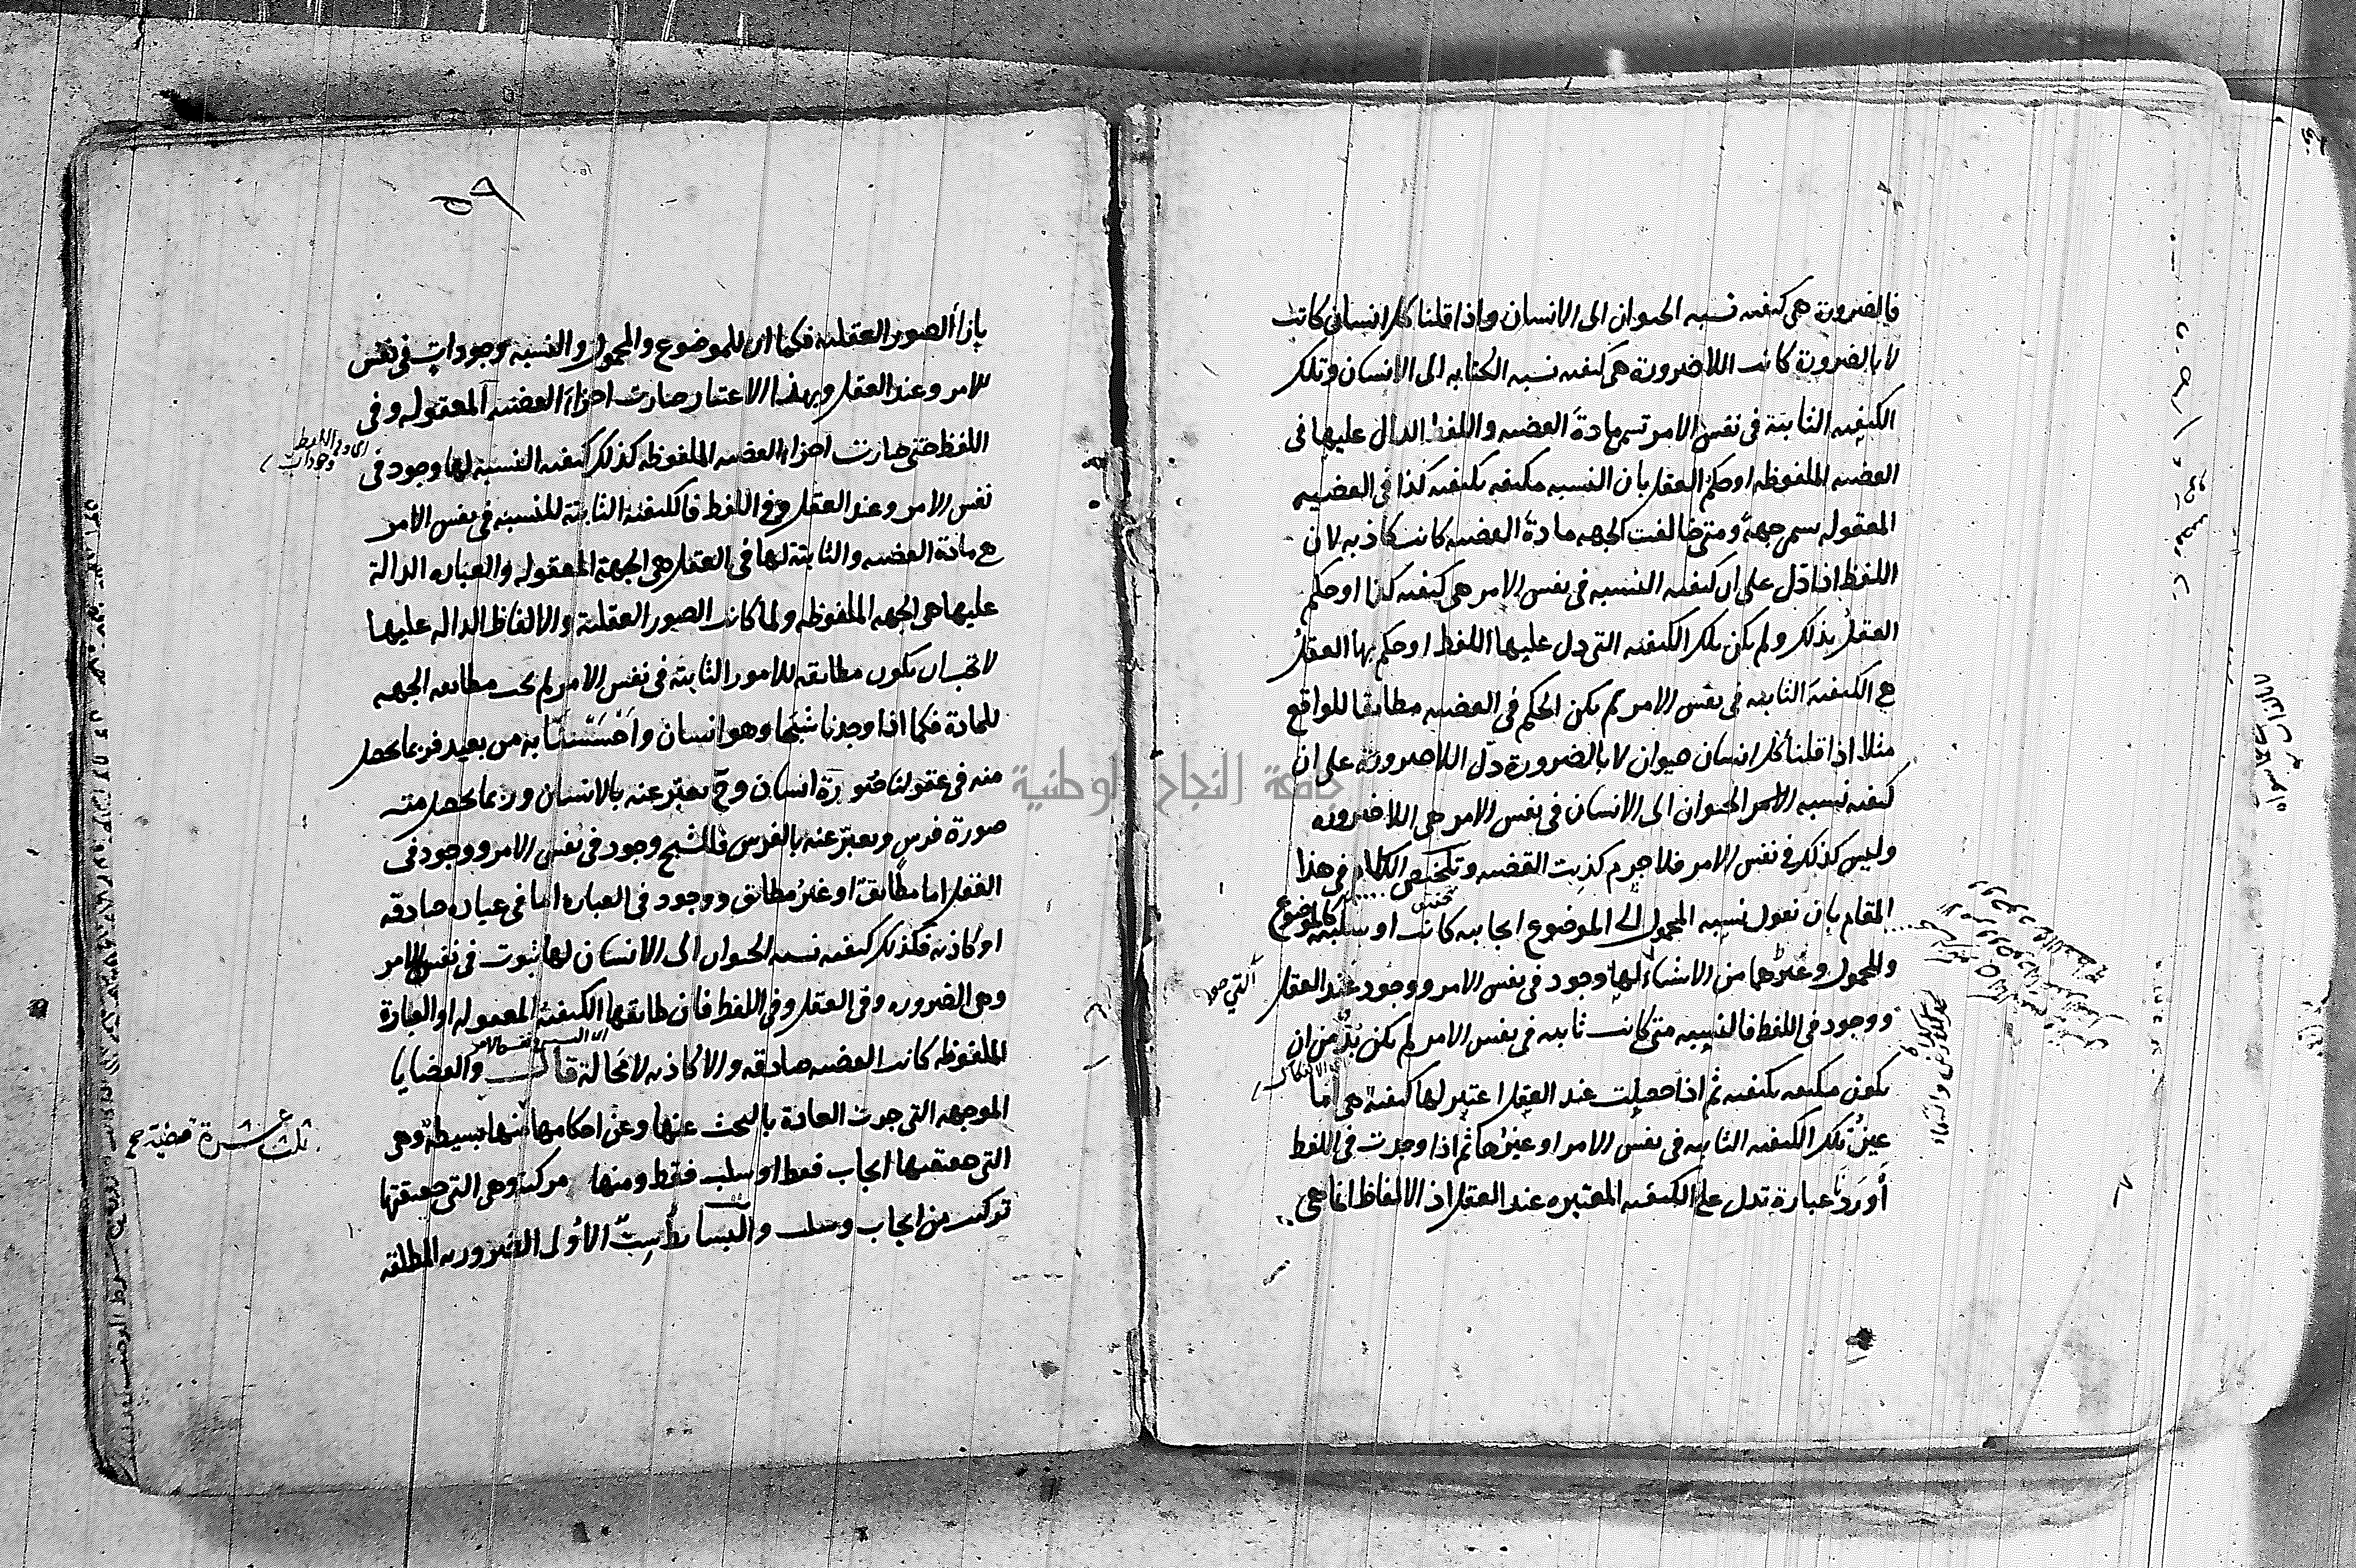 فالضرورة هي كيفية نسبة الحيوان الى الانسان واذا قلنا كل انسان كاتب
لا بالضرورة كانت اللاضرورة هي كيفية نسبة الكتابة الى الانسان وتلك
الكيفية الثابتة في نفس الامر تسمى مادة القضية واللفظ الدال عليها في
القضية الملفوظة او حكم العقل بان النسبة مكيفة بكيفية كذا في القضية
المعقولة يسمى جهة ومتى خالفت الجهة مادة القضية كانت كاذبة لان
اللفظ اذا دل على ان كيفية النسبة في نفس الامر هي كيفية كذا او حكم
العقل بذلك ولم يكن تلك الكيفية التي دل عليها اللفظ او حكم بها العقل
هي الكيفية الثابتة في نفس الامر لم يكن الحكم في القضية مطابقا للواقع
مثلا اذا قلنا كل انسان حيوان لا بالضرورة دل اللاضرورة على ان
كيفية نسبة الحيوان الى الانسان في نفس الامر هي اللاضرورة
وليس كذلك في نفس الامر فلا جرم كذبت القضية وتلخيص الكلام في هذا
المقام بان نقول نسبة المحمول الى الموضوع ايجابية كانت او سلبية كالموضوع
والمحمول وغيرهما من الاشياء لها وجود في نفس الامر ووجود عند العقل
ووجود في اللفظ فالنسبة متى كانت ثابتة في نفس الامر لم يكن بد من ان
يكون مكيفة بكيفية ثم اذا حصلت عند العقل اعتبر لها كيفية هي اما
عين تلك الكيفية الثابتة في نفس الامر او غيرها ثم اذا وجدت في اللفظ
أورد عبارة تدل على الكيفية المعتبرة عند العقل اذ الالفاظ انما هي
بازاء الصور العقلية فكما ان للموضوع والمحمول والنسبة وجودات في نفس
الامر وعند العقل وبهذا الاعتبار صارت اجزاء القضية المعقولة وفي
اللفظ حتى صارت اجزاء القضية الملفوظة كذلك كيفية النسبة لها وجود في
نفس الامر وعند العقل وفي اللفظ فالكيفية الثابتة للنسبة في نفس الامر
هي مادة القضية والثابتة لها في العقل هي الجهة المعقولة والعبارة الدالة
عليها هي الجهة الملفوظة ولما كانت الصور العقلية والالفاظ الدالة عليها
لا تجب ان يكون مطابقة للامور الثابتة في نفس الامر لم يجب مطابقة الجهة
للمادة فكما اذا وجدنا شبحا وهو انسان واحسسنا به من بعيد فربما يحصل
منه في عقولنا صورة انسان وح يعبر عنه بالانسان وربما يحصل منه
صورة فرس ويعبر عنه بالفرس فللشبح وجود في نفس الامر ووجود في
العقل اما مطابق او غير مطابق ووجود في العبارة اما في عبارة صادقة
او كاذبة فكذلك كيفية نسبة الحيوان الى الانسان لها ثبوت في نفس الامر
وهي الضرورة وفي العقل وفي اللفظ فان طابقها الكيفية المعقولة او العبارة
الملفوظة كانت القضية صادقة والا كاذبة لا محالة قال والقضايا
الموجهة التي جرت العادة بالبحث عنها وعن احكامها منها بسيطة وهي
التي حقيقتها ايجاب فقط او سلب فقط ومنها مركبة وهي التي حقيقتها
تركبت من ايجاب وسلب والبسائط ست الأولى الضرورية المطلقة
ثلث عشرة قضية صح
جامعة النجاح الوطنية